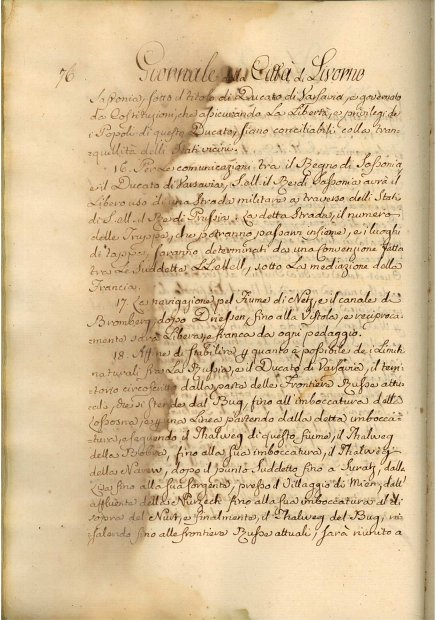 76 Giornale della Città di Livorno
Sassonia, sotto il titolo di Ducato di Varsavia, e governato
da Costituzioni, che assicurando La Libertà, e privilegi de
i Popoli di questo Ducato, siano conciliabili colla tran-
quillità delli Stati vicini.
16. Per Le comunicazioni tra il Regno di Sassonia
e il Ducato di Varsavia, S. M. il Re di Sassonia avrà il
Libero uso di una Strada militare a traverso delli Stati
di S. M. il Re di Prussia: La detta Strada, il numero
delle Truppe, che potranno passarvi insieme, e i luoghi
di tappe, saranno determinati da una Convenzione fatta
tra Le Suddette LL. MM., sotto La mediazione della
Francia.
17. La navigazione pel Fiume di Netz, e il canale di
Bromberg, dopo Driessen, fino alla Vistola, e reciproca-
mente sarà Libera, e franca da ogni pedaggio.
18. Affine di stabilire quanto è possibile de i Limiti
naturali fra La Russia, e il Ducato di Varsavia, il terri-
torio dalla parte delle Frontiere Russe attu-
che si stende dal Bug, fino all imboccatura della
Lossosna, e una Linea partendo dalla detta imbocca-
tura, e seguendo il Thalweg di questo fiume, il Thalweg
della Bobra, fino alla sua imboccatura, il Thalweg
della Narew, dopo il punto Suddetto fino a Suratz, dalla
Lisa fino alla sua sorgente, presso il Villaggio di Mien, dall
affluente della fino alla sua imboccatura al di
sopra del Nurr, e finalmente, il Thalweg del Bug, ri-
salendo fino alle frontiere Russe attuali, sarà riunito a